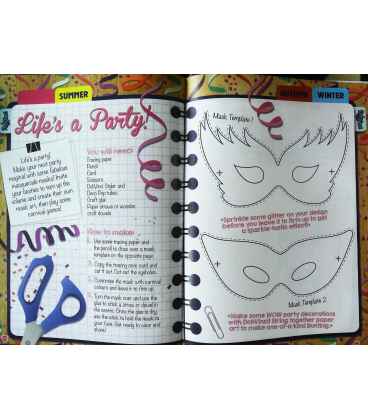 SUMMER
Life's a Party!
Life's a party!
Make your next party
magical with some fabulous
masquerade masks! Invite
your favorites to turn up the
volume and create their own
mask art, then play some
carnival games!
You will need:
Tracing paper
Pencil
Card
Scissors
Craft glue
Paper straws or wooden
craft dowels
How to make:
1. Use some tracing paper and
the pencil to draw over a mask
template on the opposite page.
2. Copy the tracing onto card and
cut it out. Cut out the eyeholes.
3. Customise the mask with carnival
colours and leave it to dry.
4. Turn the mask over and use the
glue to stick a straw or dowel in
the centre. Once the glue is dry,
use the stick to hold the mask to
your face. Get ready to wear and
share!
AUTUMN
WINTER
Mask Template 1
•Sprinkle some glitter on your design
before you leave it to dry to get
a sparkle-tastic effect!•
Mask Template 2
•Make some WOW party decorations
String together paper
art to make one-of-a-kind bunting.•